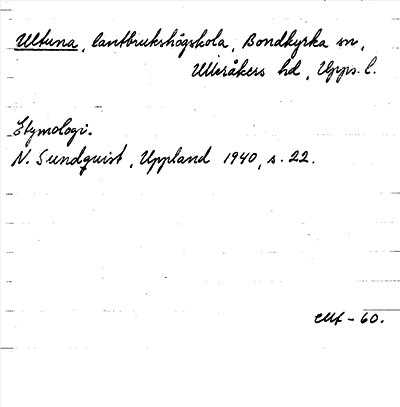 Ultuna, lantbrukshögskola, Bondkyrka sn,
Ulleråkers hd, Upps. l.
Etymologi.
N. Sundquist, Uppland 1940, s. 22.
-60.